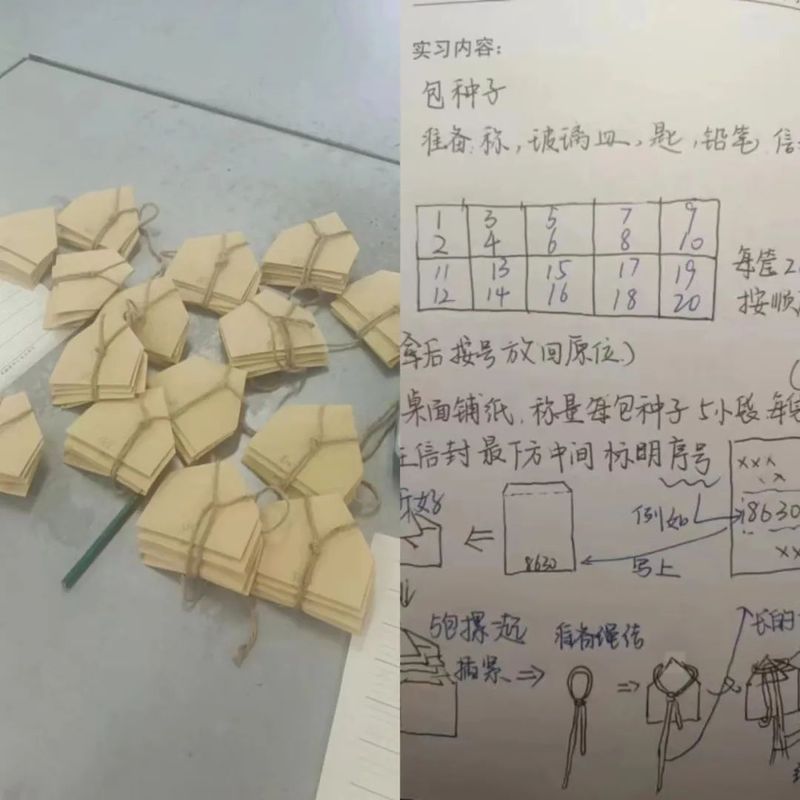 实习内容:
包种子
准备:称,玻璃皿,匙,铅笔,信
1 3 5 7 9
2 4 6 8 10
11 13 15 17 19
12 14 16 18 20
每筐2
按顺
后按号放回原位.)
桌面铺纸.称量每包种子5小段.每
信封最下方中间标明序号
xxx
xx
例如 18630
8630
写上
xx
5包摞起
插紧
准备绳结
长的